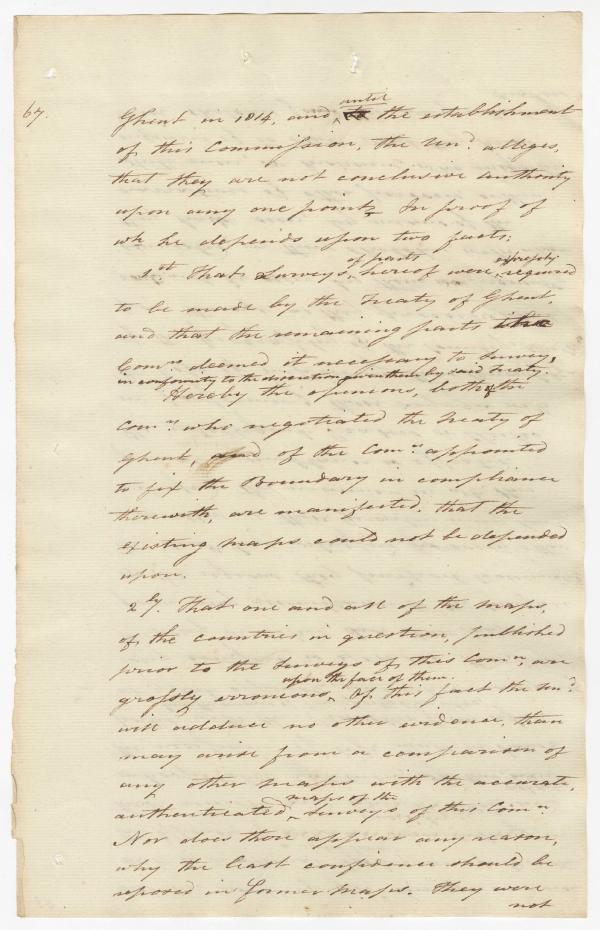 67.
Ghent in 1814, and until the establishment
of this Commission, the Und. alleges,
that they are not conclusive authority
upon any one point. In proof of
wh. he depends upon two facts:
1st That Surveys, of parts hereof were, expressly required
to be made by the Treaty of Ghent,
and that the remaining parts the
Comrs deemed it necessary to survey,
in conformity to the discretion given them by said Treaty.
Hereby the opinions, both of the
Comrs who negotiated the Treaty of
Ghent, and of the Comrs appointed
to fix the Boundary in compliance
therewith, are manifested, that the
existing maps could not be depended
upon.
2ly. That one and all of the maps,
of the countries in question, published
prior to the Surveys of this Comn, are
grossly erroneous, upon the face of them. Of this fact the Und.
will adduce no other evidence, than
may arise from a comparison of
any other maps with the accurate,
authenticated maps of the Surveys of this Comn.
Nor does there appear any reason,
why the least confidence should be
reposed in former maps. They were
not